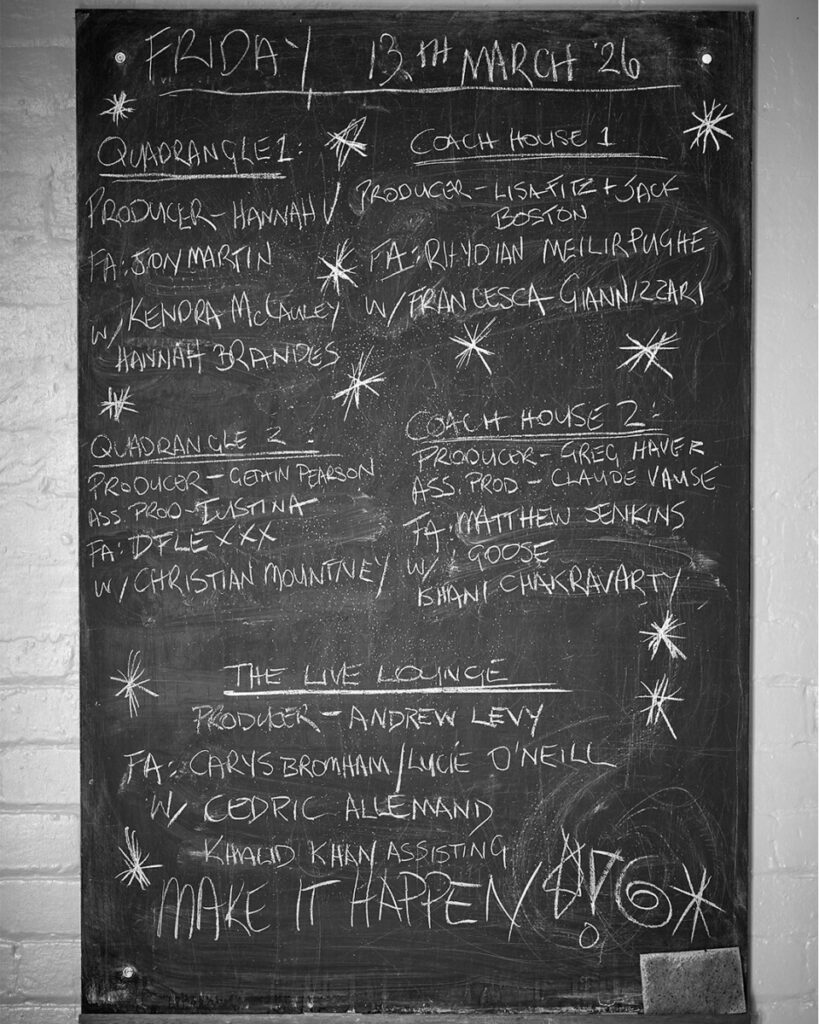 FRIDAY 13TH MARCH '26
QUADRANGLE 1:
PRODUCER - HANNAH V
FA: JON MARTIN
W/ KENDRA McCAULEY
HANNAH BRANDES
COACH HOUSE 1
PRODUCER - LISA FITZ + JACK
BOSTON
FA: RHYDIAN MEILIR PUGHE
W/ FRANCESCA GIANNIZZARI
QUADRANGLE 2:
PRODUCER - GETHIN PEARSON
ASS. PROD - IUSTINA
FA: DFLEXXX
W/ CHRISTIAN MOUNTNEY
COACH HOUSE 2:
PRODUCER - GREG HAVER
ASS. PROD - CLAUDE VAUSE
FA: MATTHEW JENKINS
W/ GOOSE
ISHANI CHAKRAVARTY
THE LIVE LOUNGE
PRODUCER - ANDREW LEVY
FA: CARYS BROMHAM / LUCIE O'NEILL
W/ CEDRIC ALLEMAND
KHALID KHAN ASSISTING
MAKE IT HAPPEN